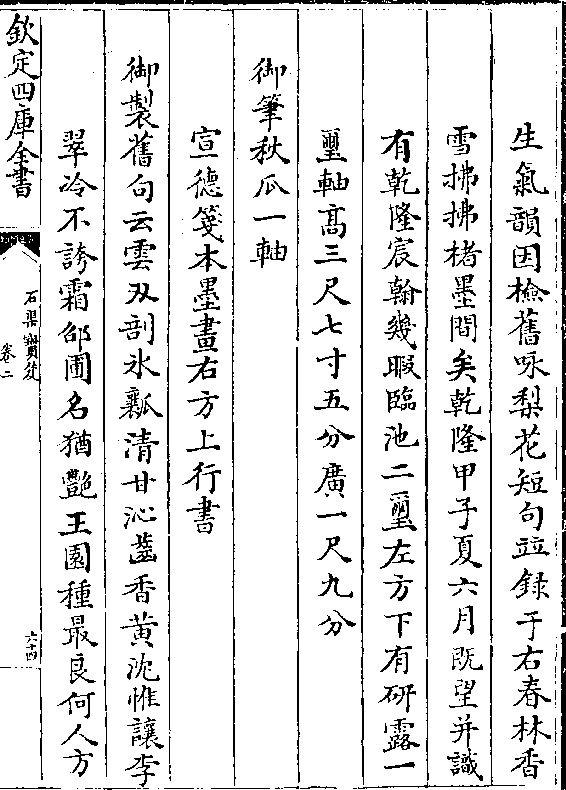 生氣韻因檢舊咏梨花短句並録于右春林香
雪拂拂楮墨間矣乾隆甲子夏六月既望并識
有乾隆宸翰幾暇臨池二璽左方下有研露一
璽軸高三尺七寸五分廣一尺九分
御筆秋瓜一軸
宣德箋本墨畫右方上行書
御製舊句云雲刄剖氷瓤清甘沁齒香黄沈惟讓李
翠冷不誇霜邵圃名猶艷王園種最良何人方
欽定四庫全書
石渠寳笈
卷二
六十四